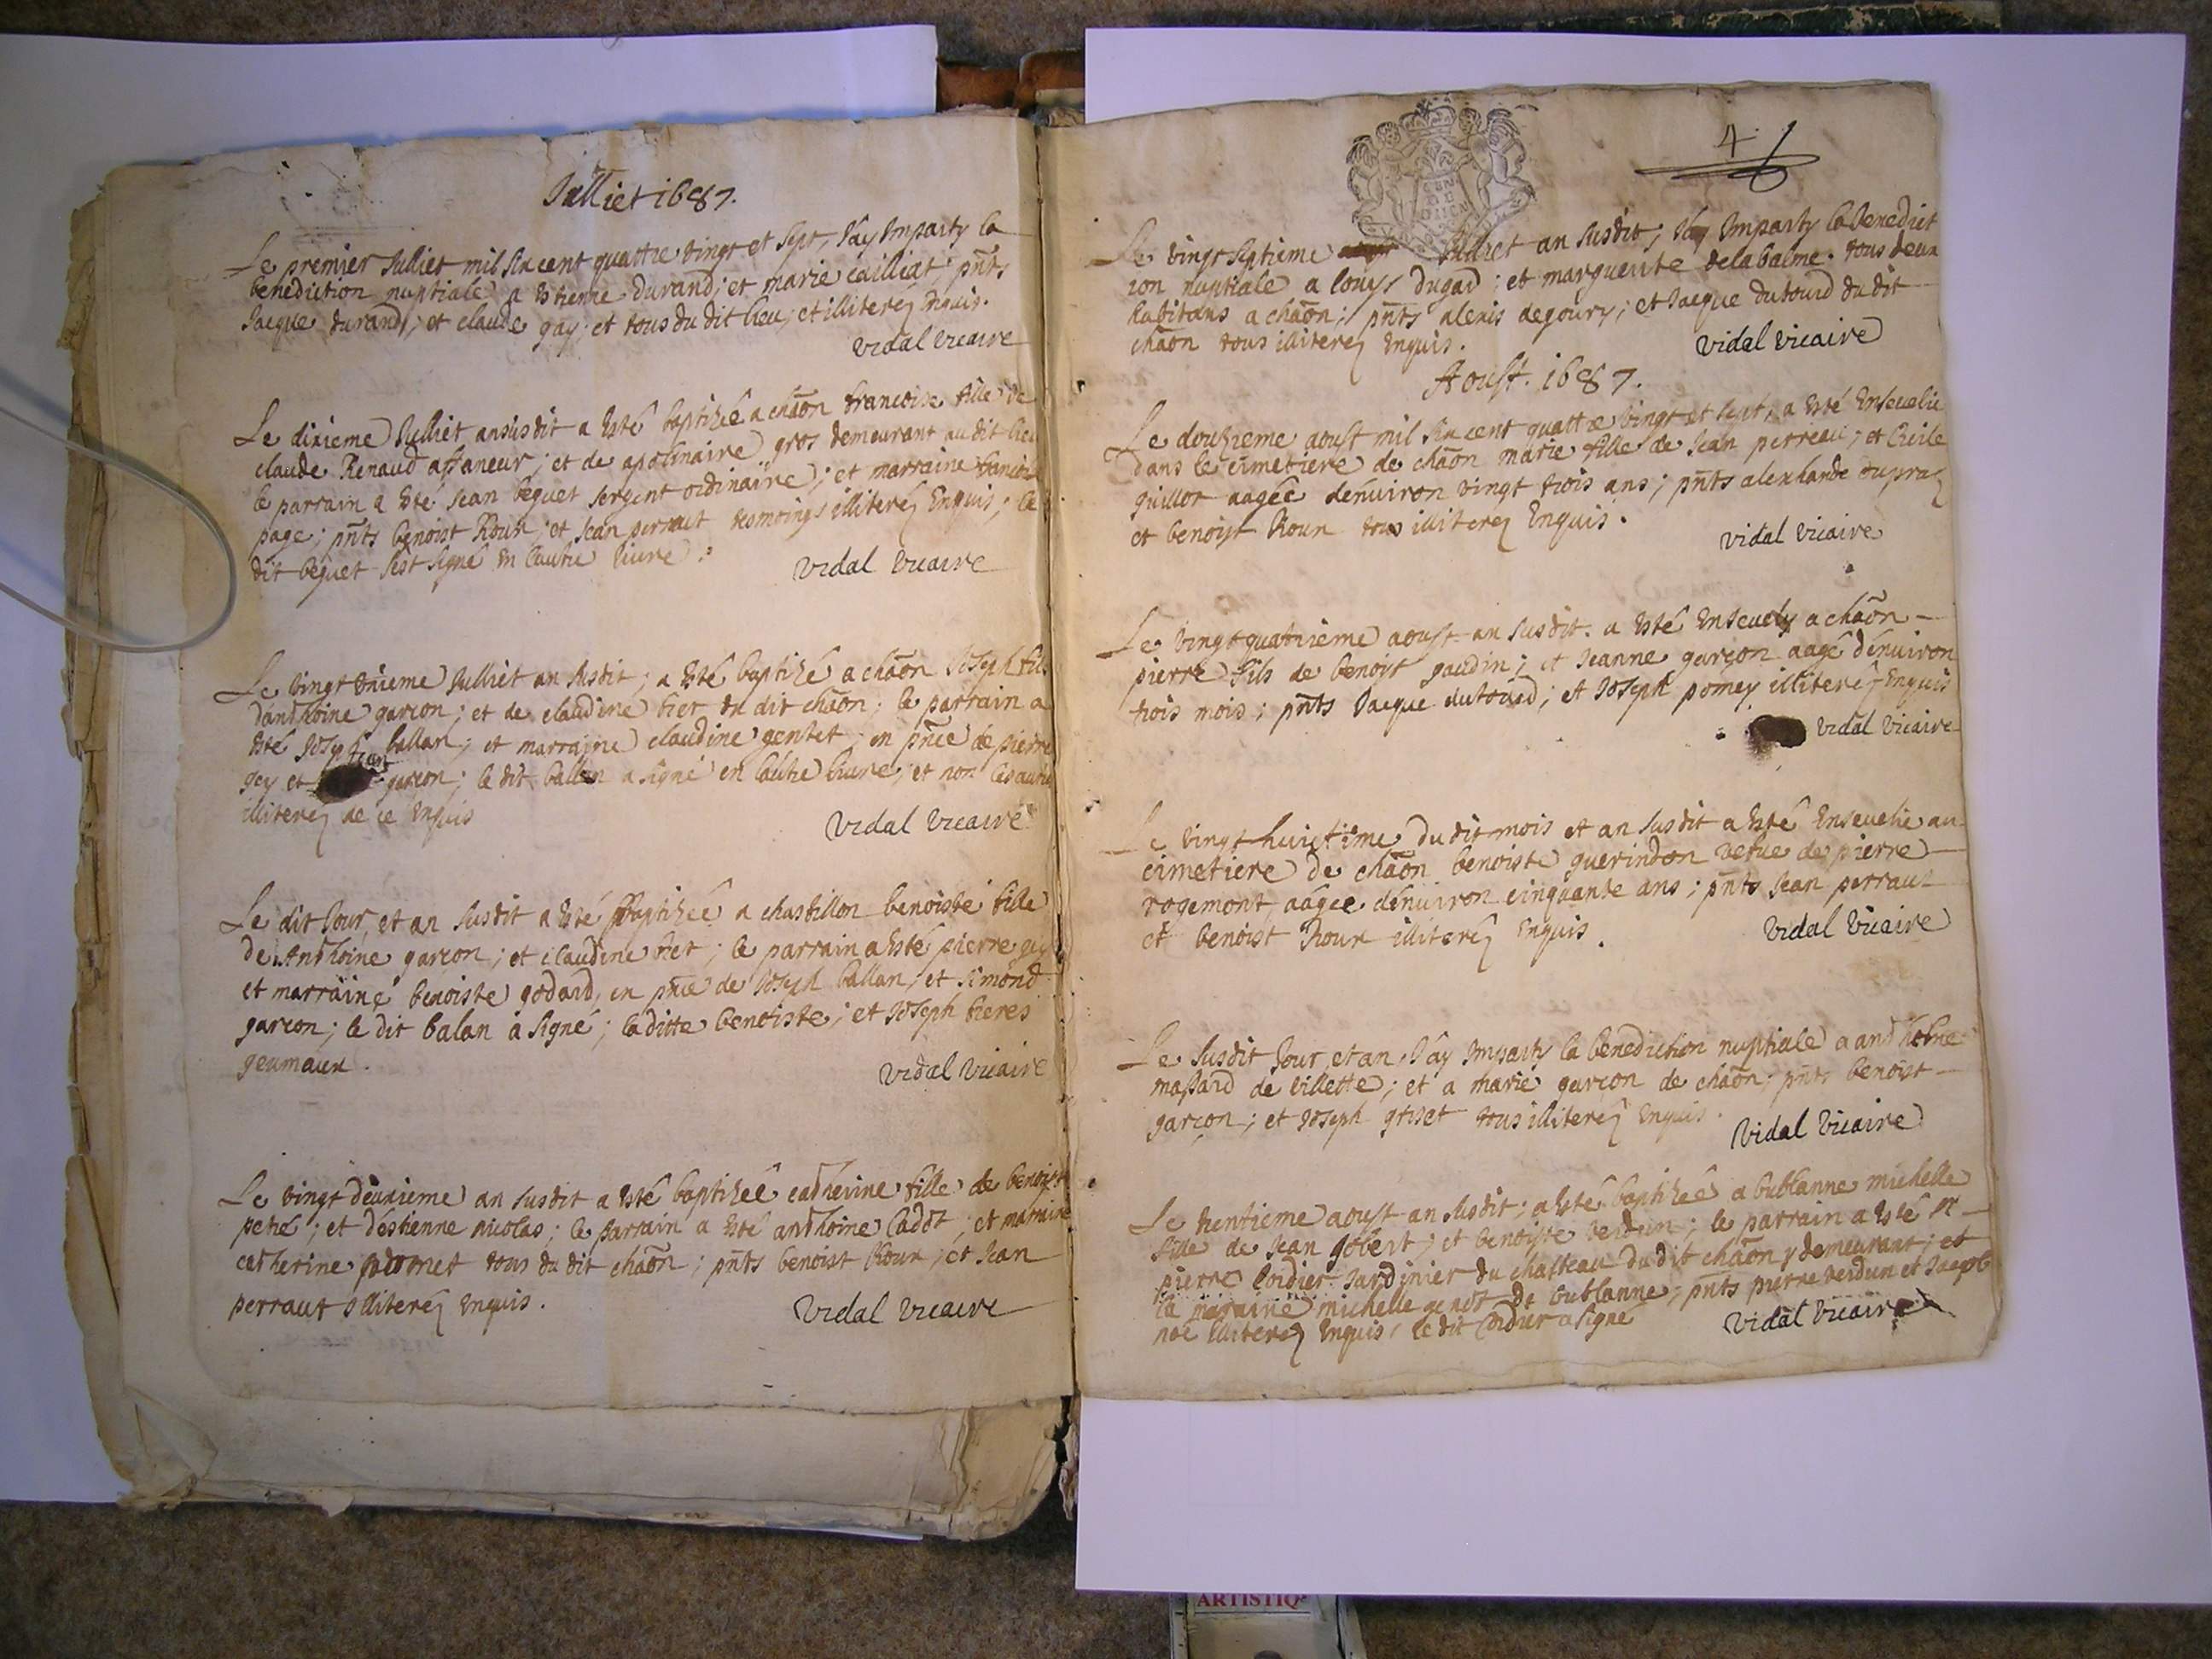 Julliet 1687.
Le premier Julliet mil six cent quattre vingt et sept, J'ay Imparty la
benediction nuptiale a Estienne durand; et marie cailliat pnts
Jacque durand; et claude gay; et tous du dit lieu, et illiterez Enquis.
Vidal Vicaire
Le dixieme Julliet an susdit a Esté baptizée a chãon francoise fille de
claude Renaud affaneur; et de apolinaire gros demeurant au dit lieu
le parrain a Esté Jean beguet sergent ordinaire; et marraine
page; pnts benoist Roux; et Jean perraut tesmoings illiterez Enquis; le
dit beguet s'est signé En l'autre livre.
Vidal Vicaire
Le vingt Unieme Julliet an susdit; a Esté baptizé a chãon Joseph fils
d'anthoine garcon; et de claudine biet du dit chãon; le parrain a
Esté Joseph ballan; et marraine claudine gentet; en pnce de pierre
gey et Jean garcon; le dit ballan a signé en l'autre livre; et non les autres
illiterez de ce Enquis
Vidal Vicaire
Le dit Jour, et an susdit a Esté Baptizée a chastillon benoiste fille
de Anthoine garcon; et claudine biet; le parrain a Esté pierre gey
et marraine benoiste godard, en pnce de Joseph ballan, et simond
garcon; le dit balan a signé; la ditte benoiste; et Joseph freres
geumaux.
Vidal Vicaire
Le vingt deuxieme an susdit a Esté baptizée catherine fille de benoist
petié; et d'estienne nicolas; le parrain a Esté anthoine Cadot, et marraine
catherine tous du dit chãon; pnts benoist Roux, et Jean
perraut Illiterez Enquis.
Vidal Vicaire
4
Le vingt septieme Julliet an susdit; J'ay Imparty la benedict
ion nuptiale a louys dugad; et marguerite delabalme. tous deux
habitans a chãon; pnts alexis degoury; et Jacque dutourd du dit
chãon tous illiterez Enquis.
Vidal Vicaire
Aoust. 1687.
Le douzieme aoust mil six cent quattre vingt et sept, a Esté Ensevelie
dans le cimetiere de chãon marie fille de Jean perreau; et Cecile
guillot aagée d'environ vingt trois ans; pnts alexsandre dupraz
et benoist Roux tous illiterez Enquis.
Vidal Vicaire
Le vingt quatrieme aoust an susdit. a Esté Ensevely a chãon
pierre fils de benoist gaudin; et Jeanne garçon aagé d'environ
trois mois; pnts Jacque dutourd; et Joseph pomey illiterez Enquis
Vidal Vicaire
Le vingt huictime du dit mois et an susdit a Esté Ensevelie au
cimetiere de chãon benoiste guerindon vefue de pierre
rogemont, aagée d'environ cinquante ans; pnts Jean perraut
et benoist Roux illiterez Enquis.
Vidal Vicaire
Le susdit Jour, et an J'ay Imparty la benediction nuptiale a anthoine
massard de villette; et a marie garcon de chãon; pnts benoist
garçon; et Joseph griset tous illiterez Enquis.
Vidal Vicaire
Le trentieme aoust an susdit; a Esté baptizée a bublanne michelle
fille de Jean gobert; et benoiste verdun; le parrain a Esté
pierre Cordier Jardinier du chasteau du dit chãon y demeurant; et
la maraine michelle genot de bublanne; pnts pierre verdun et Jacob
noé illiterez Enquis, le dit Cordier a signé
Vidal Vicaire
ARTISTIQ